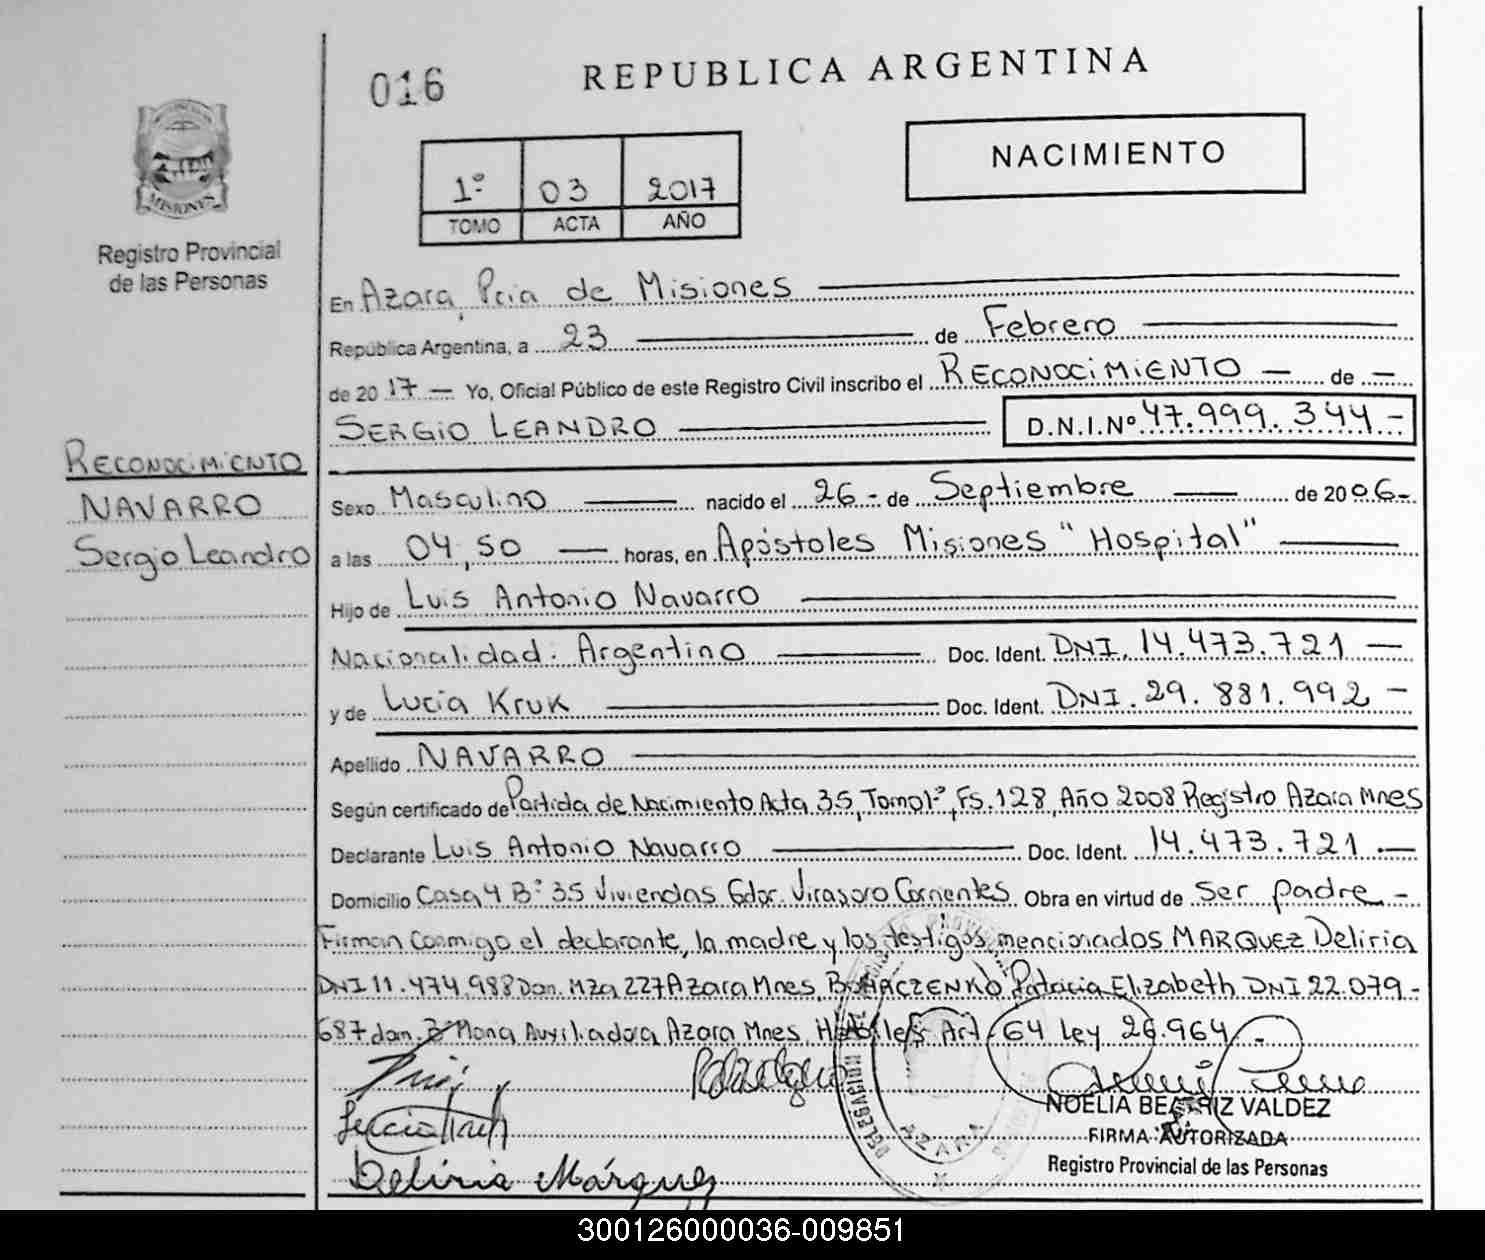 016
REPUBLICA ARGENTINA
NACIMIENTO
1º 03 2017
TOMO ACTA AÑO
MISIONES
Registro Provincial
de las Personas
En Azara, Pcia de Misiones
República Argentina, a 23 de Febrero
de 2017 — Yo, Oficial Público de este Registro Civil inscribo el RECONOCIMIENTO — de —
SERGIO LEANDRO D.N.I.Nº 47.999.344-
RECONOCIMIENTO
NAVARRO
Sergio Leandro
Sexo Masculino nacido el 26 - de Septiembre de 2006-
a las 04,50 horas, en Apóstoles Misiones "Hospital"
Hijo de Luis Antonio Navarro
Nacionalidad: Argentino Doc. Ident. DNI. 14.473.721 —
y de Lucia Kruk Doc. Ident. DNI. 29.881.992 -
Apellido NAVARRO
Según certificado de Partida de Nacimiento Acta 35, Tomo 1º, Fs. 128, Año 2008 Registro Azara Mnes
Declarante Luis Antonio Navarro Doc. Ident. 14.473.721 —
Domicilio Casa 4 Bº 35 Viviendas Gdor. Virasoro Corrientes Obra en virtud de Ser padre -
Firman conmigo el declarante, la madre y los testigos mencionados MARQUEZ Deliria
DNI 11.474.988 Dom. Mza 227 Azara Mnes, BOHACZENKO Patricia Elizabeth DNI 22.079-
687 dom. Bº Maria Auxiliadora Azara Mnes. Art. 64 Ley 26.964 -
Deliria Márquez
DELEGACION
AZARA
NOELIA BEATRIZ VALDEZ
FIRMA AUTORIZADA
Registro Provincial de las Personas
300126000036-009851